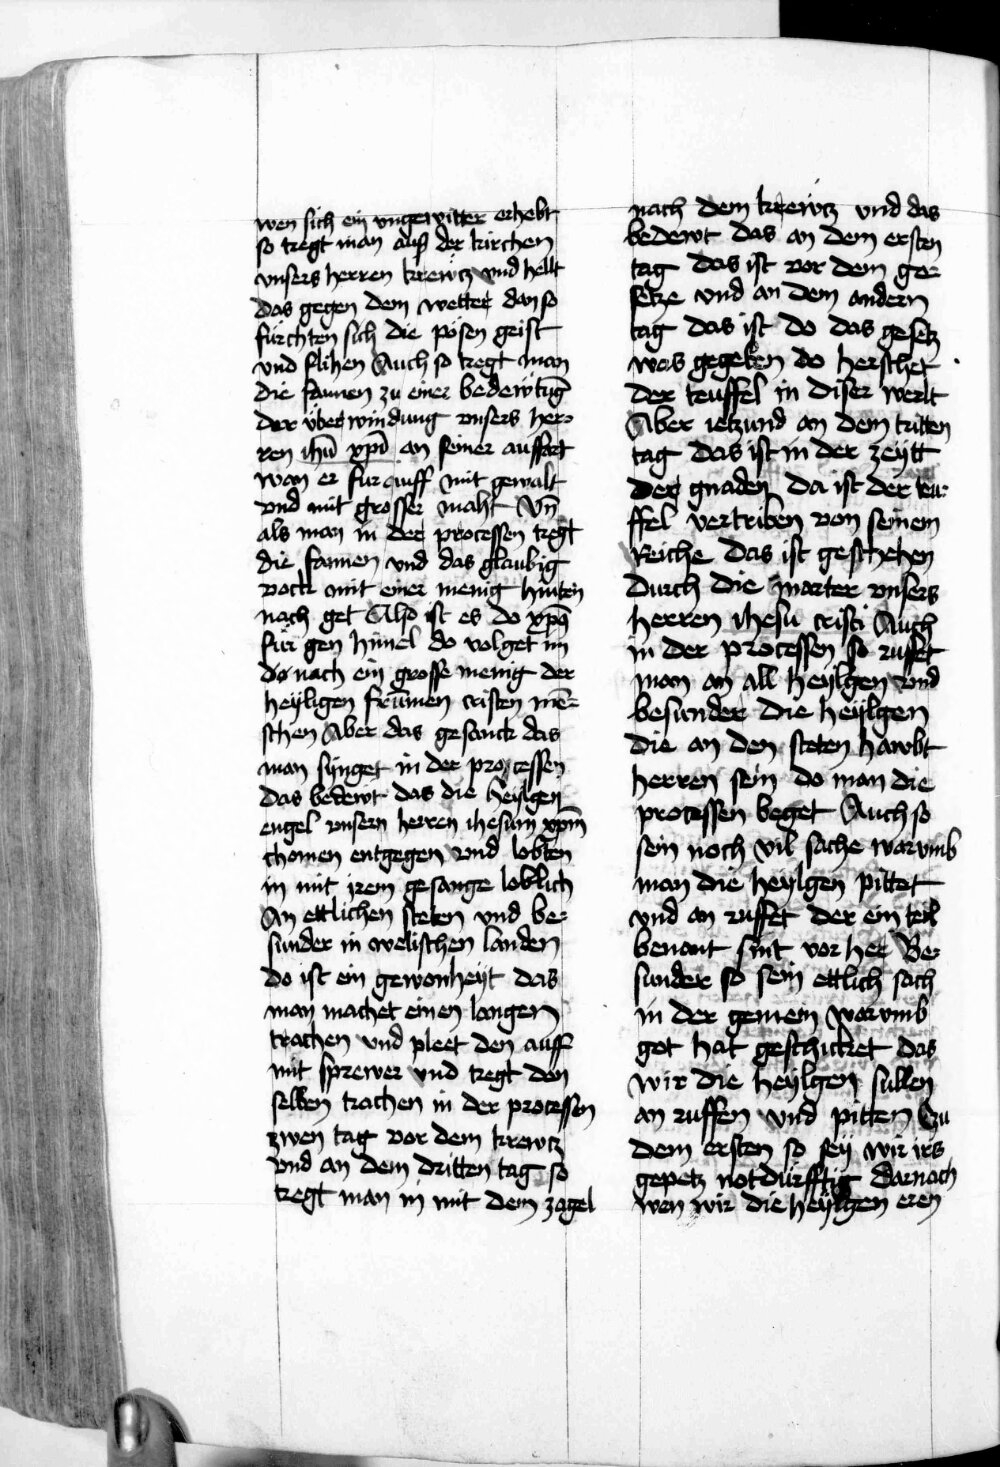 wen sich ein ungewitter erhebt
so tregt man auß der kirchen
vnsers herren krewtz vnd hellt
das gegen dem wetter dan so
furchten sich die pösen geist
vnd flihen Auch so tregt man
die fannen zu einer bedewtūg
der über windung vnsers her-
ren ihū xp̄i an seiner auffart
wan er fur auff mit gewalt
vnd mit grosser maht Vn̄
als man in der processen tregt
die fannen vnd das glaubig
volck mit einer menig hinten
nach get Also ist es do xp̄s
fur gen himel do volget im
do nach ein grosse menig der
heyligen frūmen cristen mē-
schen Aber das gesanck das
man synget in der processen
das bedewt das die heylgen
engel vnsern herren ihesum xp̄m
chomen entgegen vnd lobten
in mit irem gesange loblich
An ettlichen steten vnd be-
sunder in welischen landen
do ist ein gewonheyt das
man machet einen langen
trachen vnd pleet den auff
mit sprewer vnd tregt den
selben trachen in der processen
zwen tag vor dem krewtz
vnd an dem dritten tag so
tregt man in mit dem zagel
nach dem krewtz vnd das
bedewt das an dem ersten
tag das ist vor dem ge-
setze vnd an dem andern
tag das ist do das gesetz
was gegeben do herschet
der teuffel in diser werlt
Aber ietzund an dem tritten
tag das ist in der zeytt
der gnaden da ist der teu-
ffel vertriben von seinem
Reiche das ist geschehen
durch die marter vnsers
herren ihesu cristi Auch
in der processen so ruffet
man an all heylgen vnd
besunder die heylgen
die an den steten hawbt
herren sein do man die
processen beget Auch so
sein noch vil sache warvmb
man die heylgen pittet
vnd an ruffet der ein teil
benant sint vor her Be-
sunder so sein ettlich sach
in der gemein warvmb
got hat geschicket das
wir die heylgen sullen
an ruffen vnd pitten Zu
dem ersten so sey wir irs
gepetz notdurfftig darnach
wen wir die heylgen eren